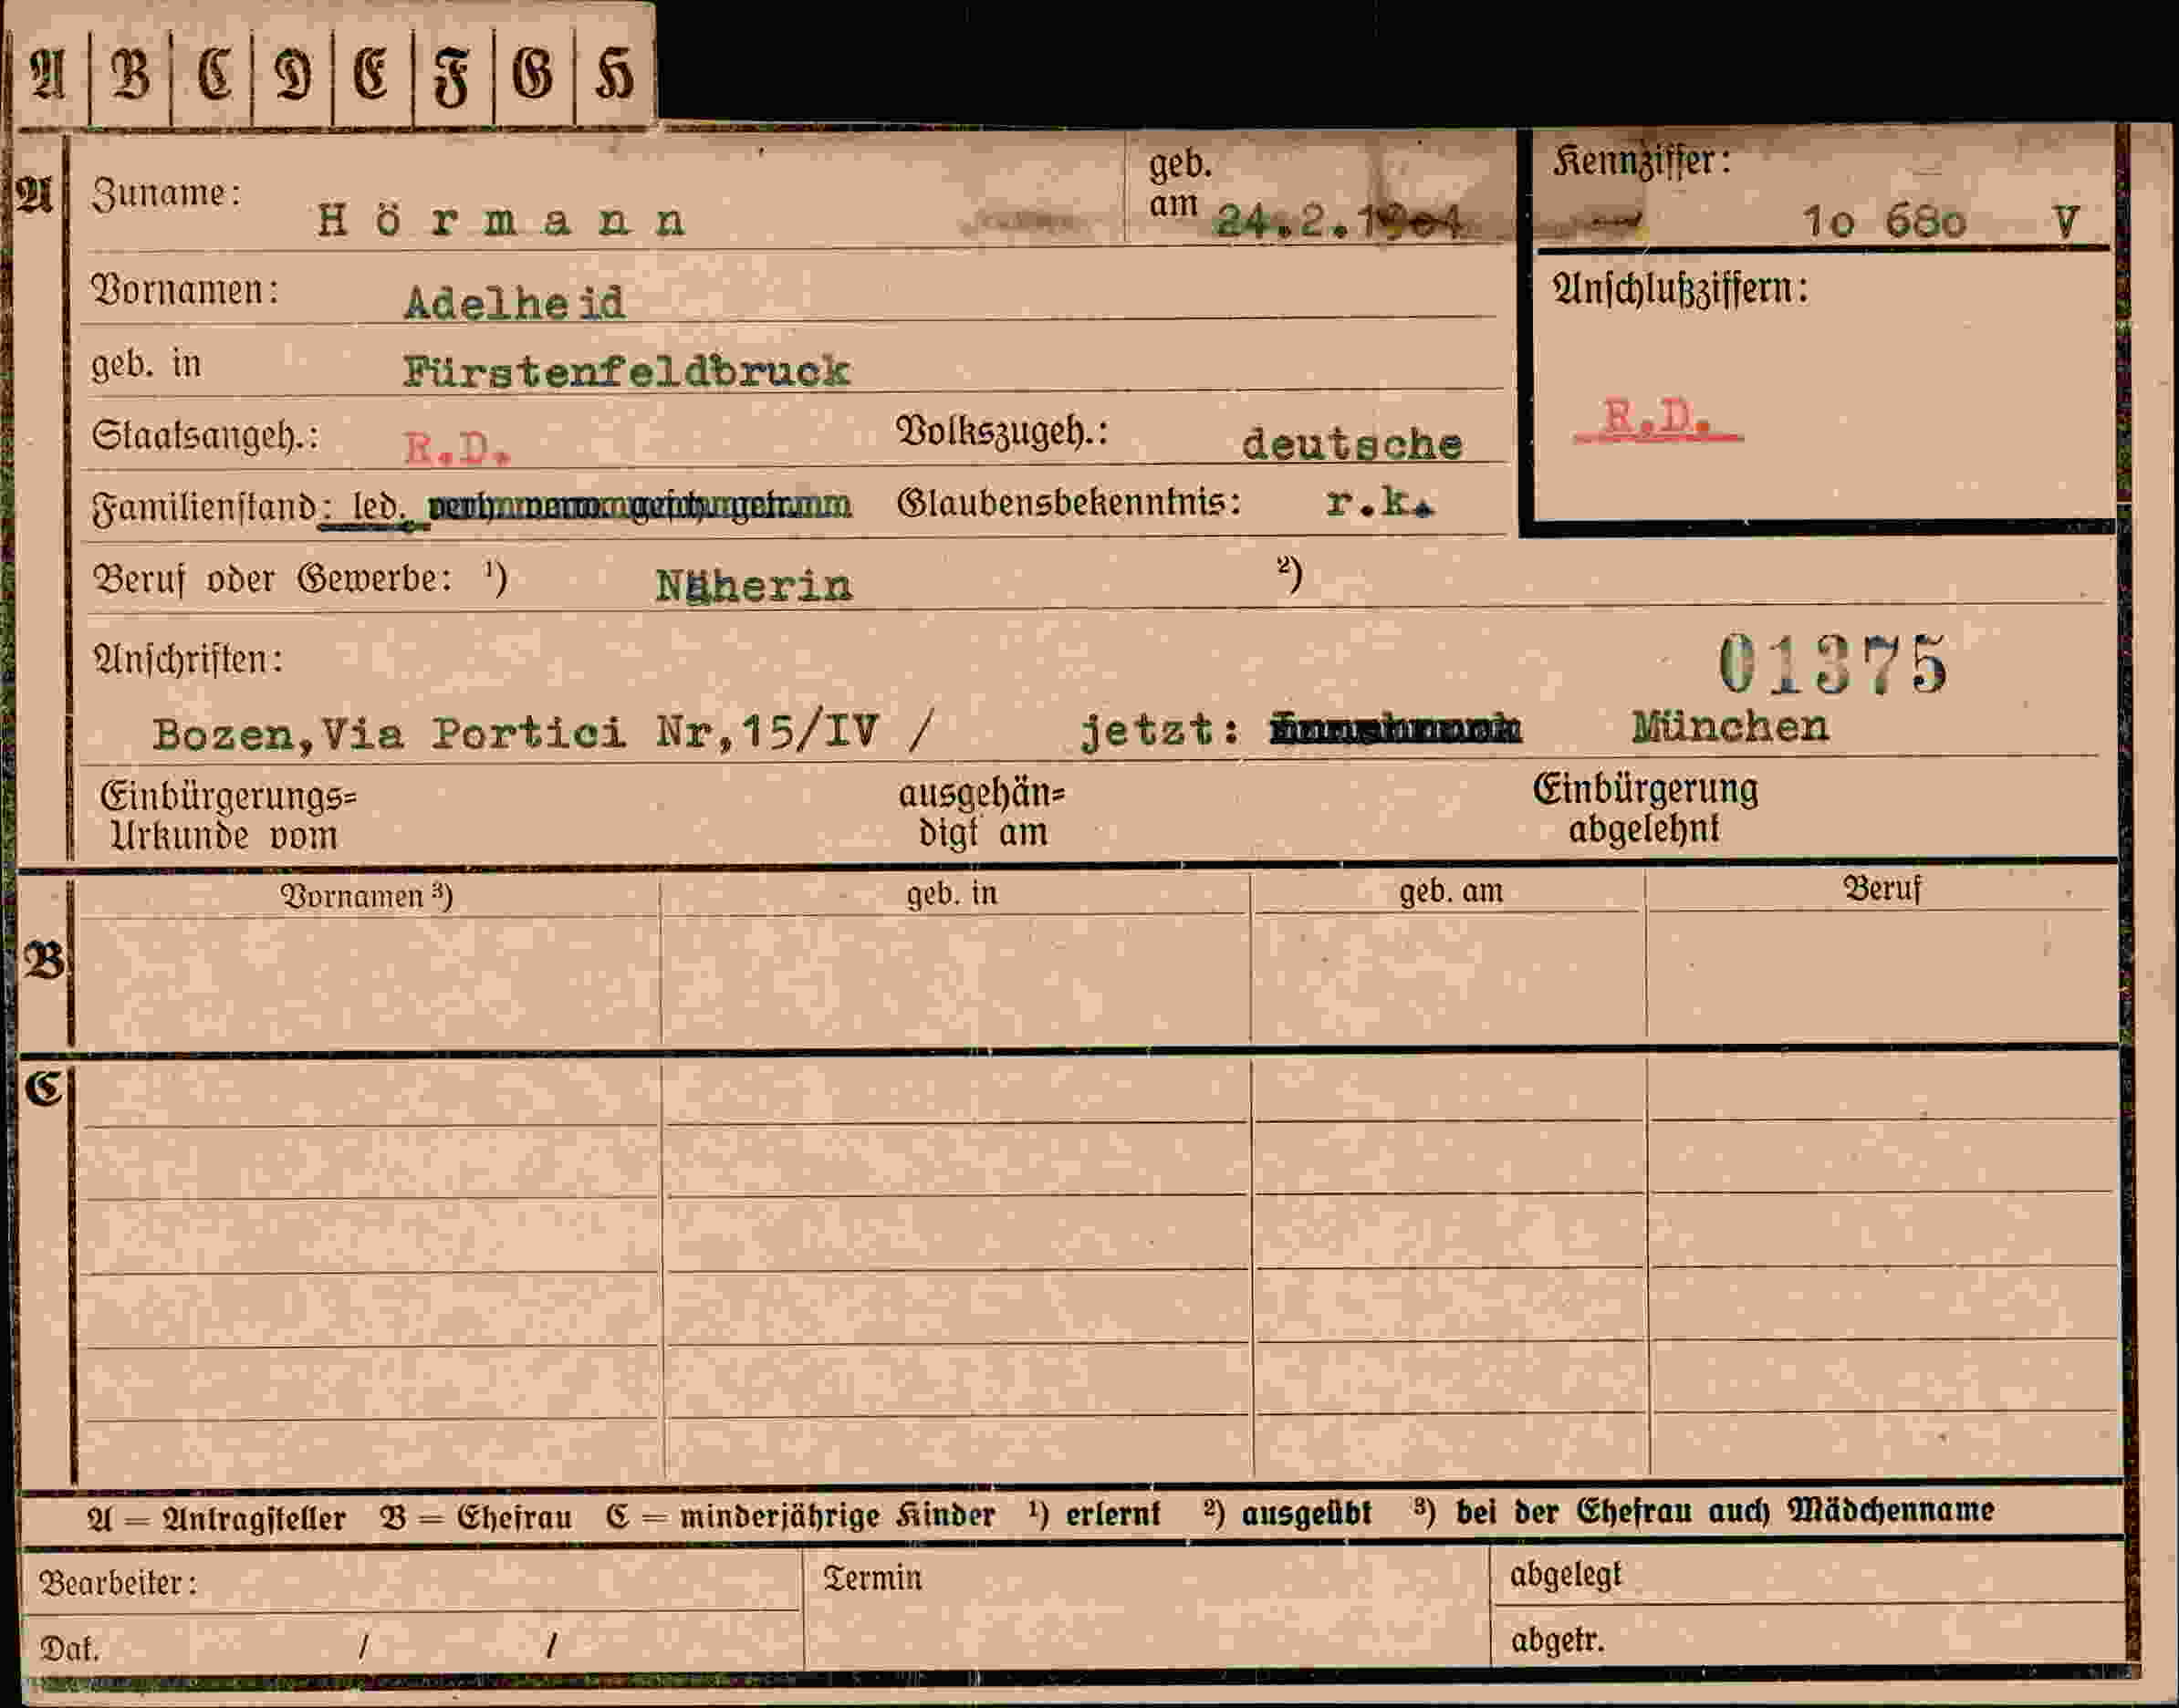 A B C D E F G H
A Zuname: Hörmann geb. am 24.2.1904 Kennziffer: 10 680 V
Vornamen: Adelheid Anschlußziffern:
geb. in Fürstenfeldbruck
Staatsangeh.: R.D. Volkszugeh.: deutsche R.D.
Familienstand: led. Glaubensbekenntnis: r.k.
Beruf oder Gewerbe: ¹) Näherin ²)
Anschriften: 01375
Bozen,Via Portici Nr,15/IV / jetzt: München
Einbürgerungs= ausgehän= Einbürgerung
Urkunde vom digt am abgelehnt
Vornamen ³) geb. in geb. am Beruf
B
C
A = Antragsteller B = Ehefrau C = minderjährige Kinder ¹) erlernt ²) ausgeübt ³) bei der Ehefrau auch Mädchenname
Bearbeiter: Termin abgelegt
Dat. / / abgetr.